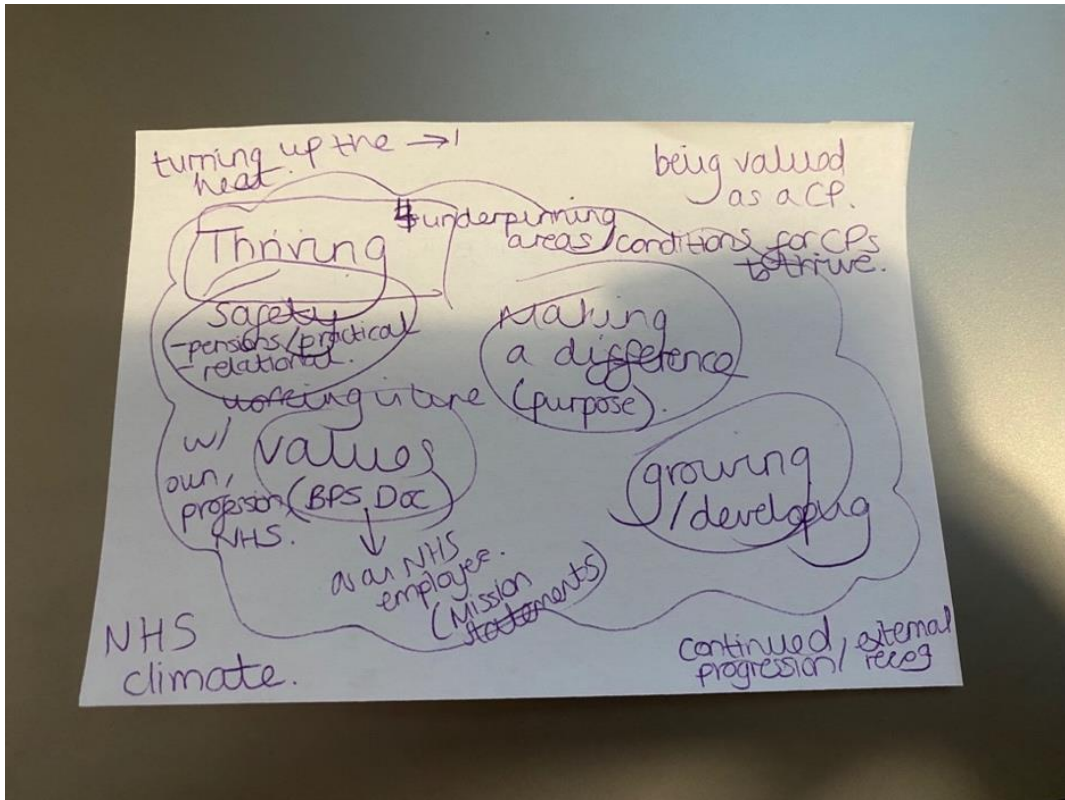 turning up the →1
heat.
being valued
as a CP.
Thriving
4 underpinning
areas/conditions for CPs
to thrive.
safety
- pensions/practical
- relational.
Making
a difference
(purpose).
working in line
w/
own,
profession/
NHS.
values
(BPS Doc)
↓
as an NHS
employee.
(Mission
statements)
growing
/developing
NHS
climate.
continued / external
progression / recog